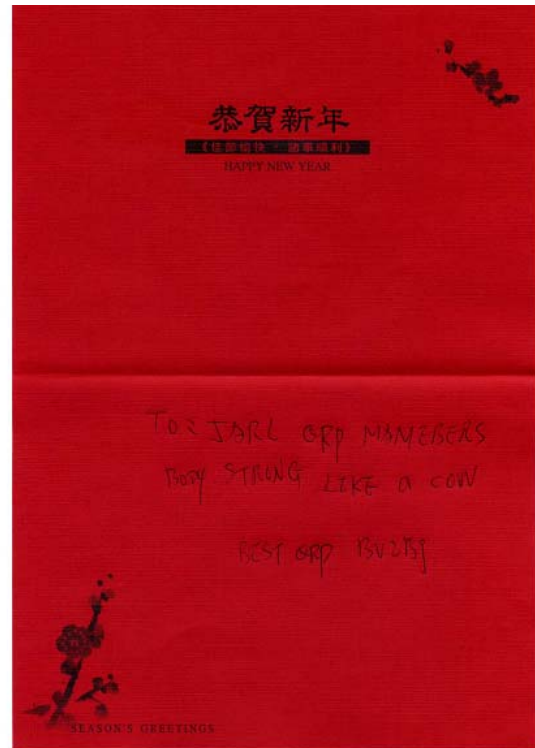 恭賀新年
《佳節愉快・諸事順利》
HAPPY NEW YEAR
TO: JARL QRP MAMEBERS
BODY STRONG LIKE a COW
BEST QRP BV2BJ
SEASON'S GREETINGS